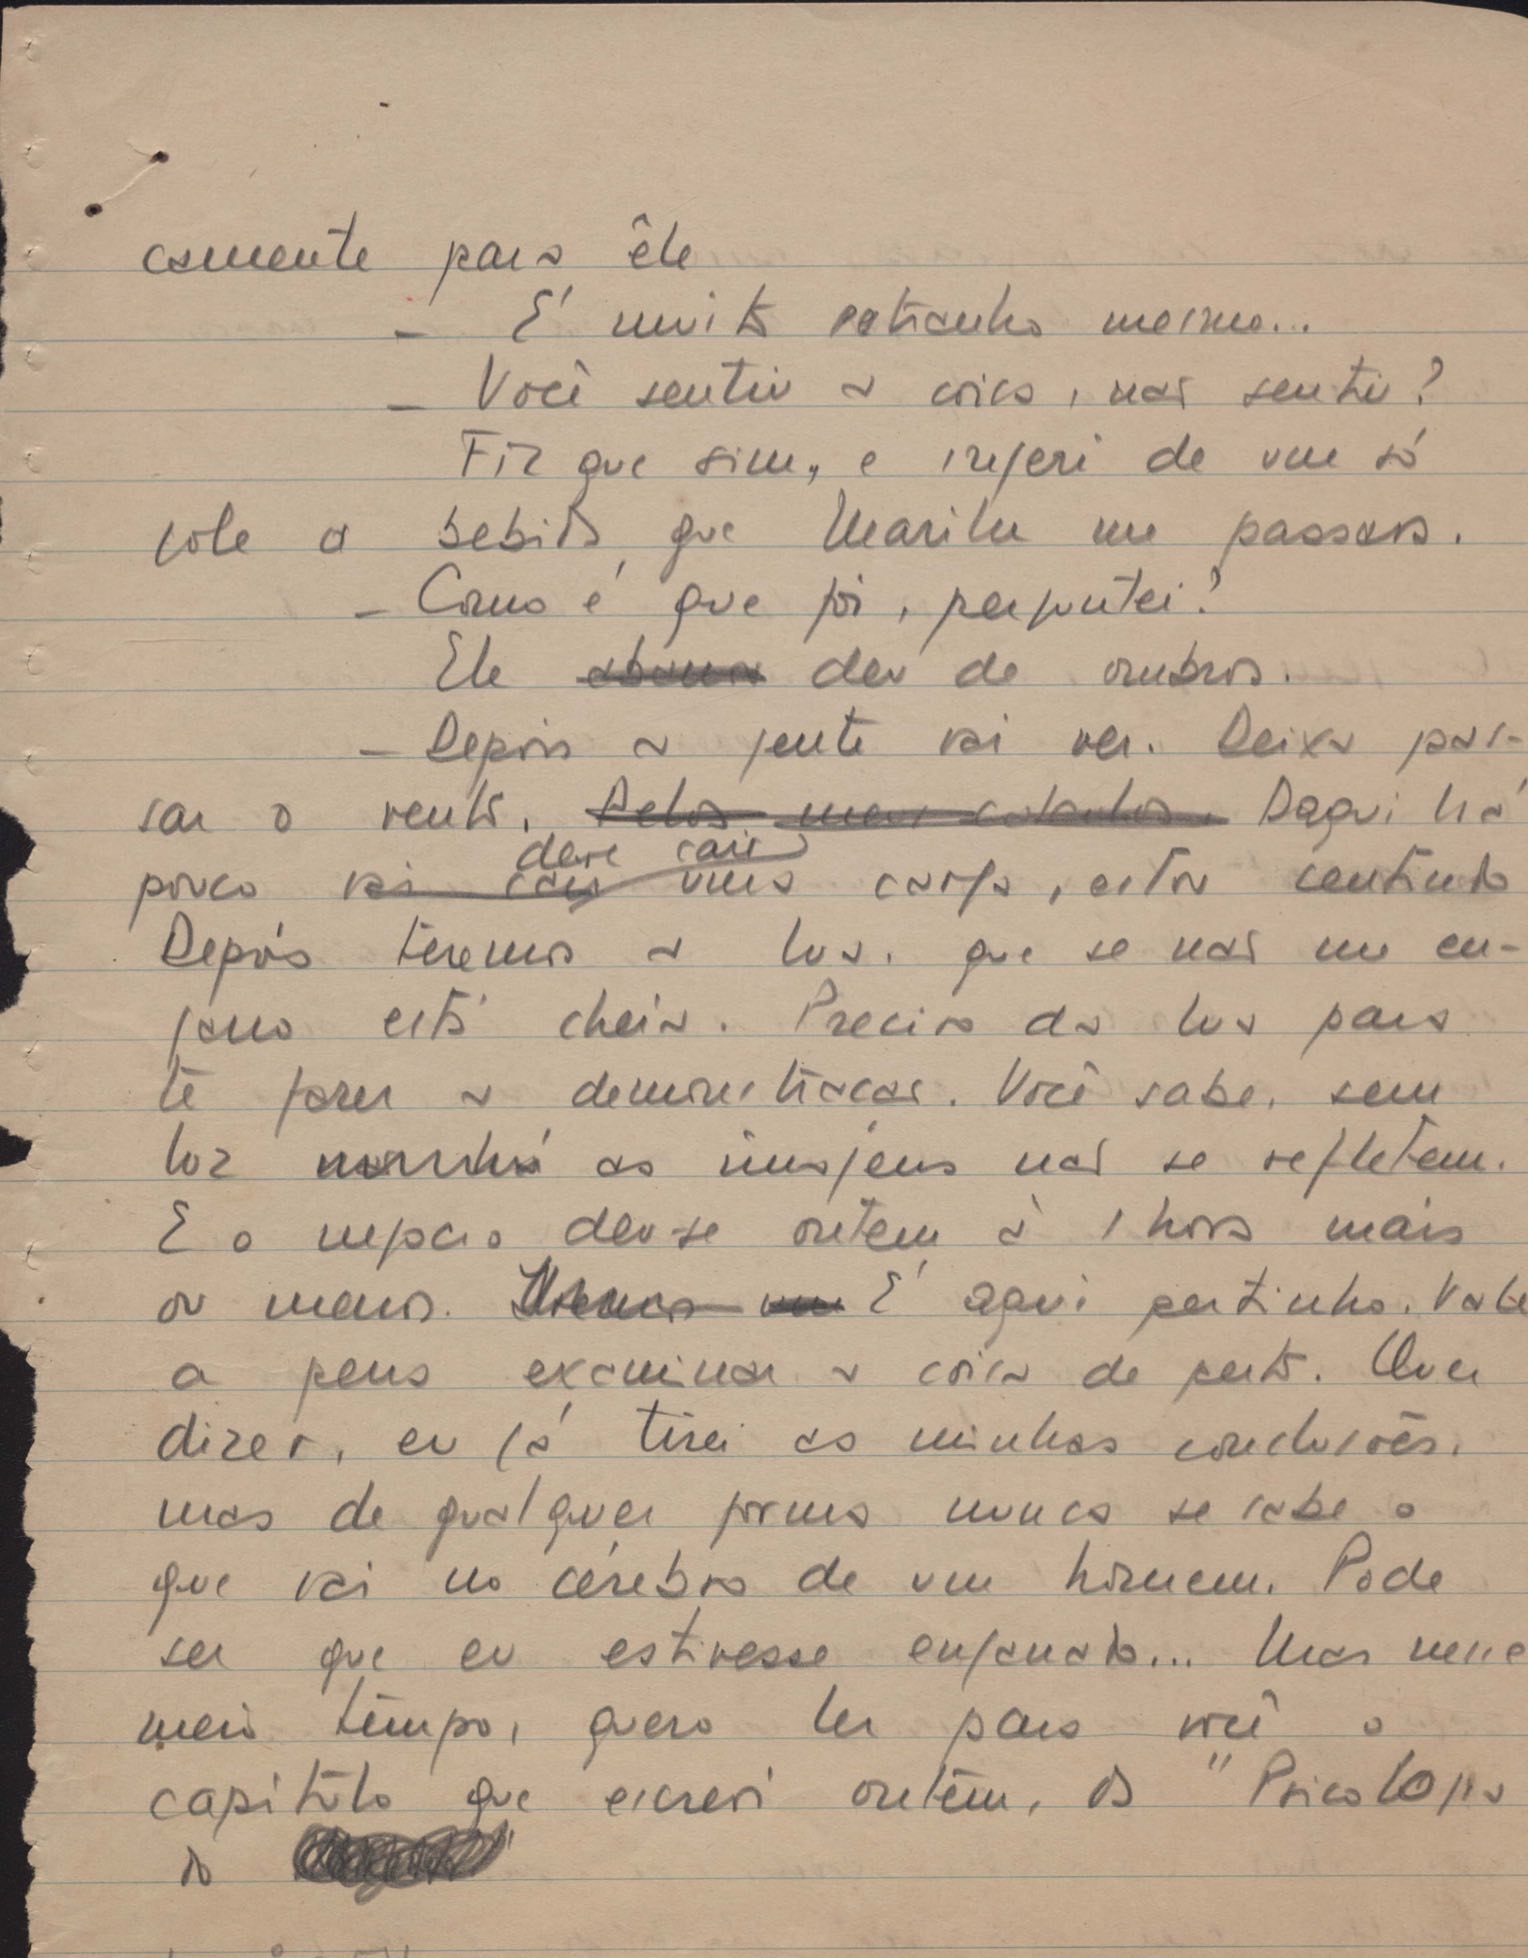 camente para êle
– É muito estranho mesmo...
– Você sentiu a coisa, não sentiu?
Fiz que sim, e ingeri de um só
gole a bebida que Marilu me passava.
– Como é que foi, perguntei?
Ele deu de ombros.
– Depois a gente vai ver. Deixa pas-
sar o vento. Pelos meus cálculos. Daqui há
deve cair
pouco vai cair uma carga, estou sentindo
Depois teremos a lua. que se não me en-
gano está cheia. Preciso da lua para
te fazer a demonstração. Você sabe, sem
luz as imagens não se refletem.
E o negocio deu-se ontem à 1 hora mais
ou menos. É aqui pertinho. Vale
a pena examinar a coisa de perto. Quer
dizer, eu já tirei as minhas conclusões,
mas de qualquer forma nunca se sabe o
que vai no cérebro de um homem. Pode
ser que eu estivesse enganado... Mas nesse
meio tempo, quero ler para você o
capítulo que escrevi ontem, da "Psicologia
do